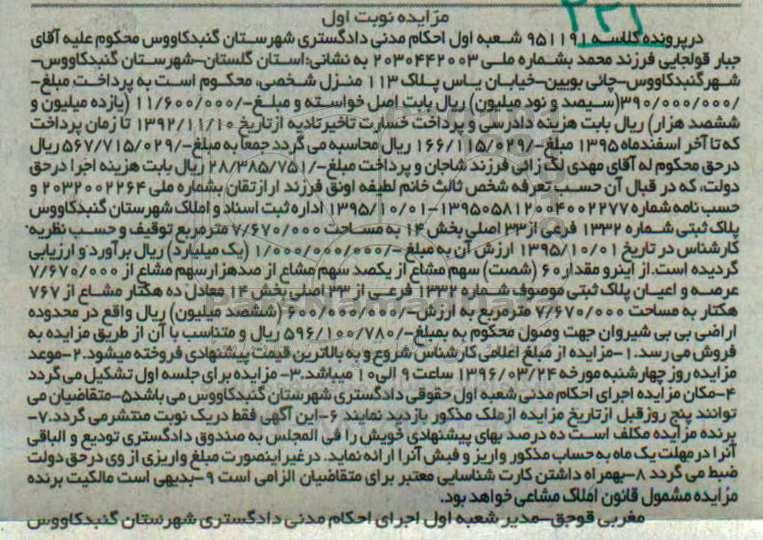 مزایده نوبت اول
درپرونده کلاسه ۹۵۱۱۹۱ شعبه اول احکام مدنی دادگستری شهرستان گنبدکاووس محکوم علیه آقای
جبار قولجایی فرزند محمد بشماره ملی ۲۰۳۰۴۴۲۰۰۳ به نشانی:استان گلستان-شهرستان گنبدکاووس-
شهرگنبدکاووس-چائی بویین-خیابان یاس پلاک ۱۱۳ منزل شخصی، محکوم است به پرداخت مبلغ-
/۳۹۰/۰۰۰/۰۰۰(سیصد و نود میلیون) ریال بابت اصل خواسته و مبلغ-/۱۱/۶۰۰/۰۰۰ (یازده میلیون و
ششصد هزار) ریال بابت هزینه دادرسی و پرداخت خسارت تاخیرتادیه ازتاریخ ۱۳۹۲/۱۱/۱۰ تا زمان پرداخت
که تا آخر اسفندماه ۱۳۹۵ مبلغ-/۱۶۶/۱۱۵/۰۲۹ ریال محاسبه می گردد جمعا به مبلغ-/۵۶۷/۷۱۵/۰۲۹ ریال
درحق محکوم له آقای مهدی لک زائی فرزند شاجان و پرداخت مبلغ-/۲۸/۳۸۵/۷۵۱ ریال بابت هزینه اجرا درحق
دولت، که در قبال آن حسب تعرفه شخص ثالث خانم لطیفه اونق فرزند ارازتقان بشماره ملی ۲۰۳۲۰۰۲۲۶۴ و
حسب نامه شماره ۱۳۹۵۰۵۸۱۲۰۰۴۰۰۲۲۷۷-۱۳۹۵/۱۰/۰۱ اداره ثبت اسناد و املاک شهرستان گنبدکاووس
پلاک ثبتی شماره ۱۳۳۲ فرعی از۳۳ اصلی بخش ۱۴ به مساحت ۷/۶۷۰/۰۰۰ مترمربع توقیف و حسب نظریه
کارشناس در تاریخ ۱۳۹۵/۱۰/۰۱ ارزش آن به مبلغ-/۱/۰۰۰/۰۰۰/۰۰۰ (یک میلیارد) ریال برآورد و ارزیابی
گردیده است. از اینرو مقدار ۶۰ (شصت) سهم مشاع از یکصد سهم مشاع از صدهزارسهم مشاع از ۷/۶۷۰/۰۰۰
عرصه و اعیان پلاک ثبتی موصوف شماره ۱۳۳۲ فرعی از ۳۳ اصلی بخش ۱۴ معادل ده هکتار مشاع از ۷۶۷
هکتار به مساحت ۷/۶۷۰/۰۰۰ مترمربع به ارزش-/۶۰۰/۰۰۰/۰۰۰ (ششصد میلیون) ریال واقع در محدوده
اراضی بی بی شیروان جهت وصول محکوم به بمبلغ-/۵۹۶/۱۰۰/۷۸۰ ریال و متناسب با آن از طریق مزایده به
فروش می رسد. ۱-مزایده از مبلغ اعلامی کارشناس شروع و به بالاترین قیمت پیشنهادی فروخته میشود. ۲-موعد
مزایده روز چهارشنبه مورخه ۱۳۹۶/۰۳/۲۴ ساعت ۹ الی۱۰ میباشد. ۳- مزایده برای جلسه اول تشکیل می گردد
۴-مکان مزایده اجرای احکام مدنی شعبه اول حقوقی دادگستری شهرستان گنبدکاووس می باشد ۵-متقاضیان می
توانند پنج روزقبل ازتاریخ مزایده ازملک مذکور بازدید نمایند ۶-این آگهی فقط دریک نوبت منتشرمی گردد. ۷-
برنده مزایده مکلف است ده درصد بهای پیشنهادی خویش را فی المجلس به صندوق دادگستری تودیع و الباقی
آنرا درمهلت یک ماه به حساب مذکور واریز و فیش آنرا ارائه نماید. درغیراینصورت مبلغ واریزی از وی درحق دولت
ضبط می گردد ۸-بهمراه داشتن کارت شناسایی معتبر برای متقاضیان الزامی است ۹-بدیهی است مالکیت برنده
مزایده مشمول قانون املاک مشاعی خواهد بود.
مغربی قوجق-مدیر شعبه اول اجرای احکام مدنی دادگستری شهرستان گنبدکاووس